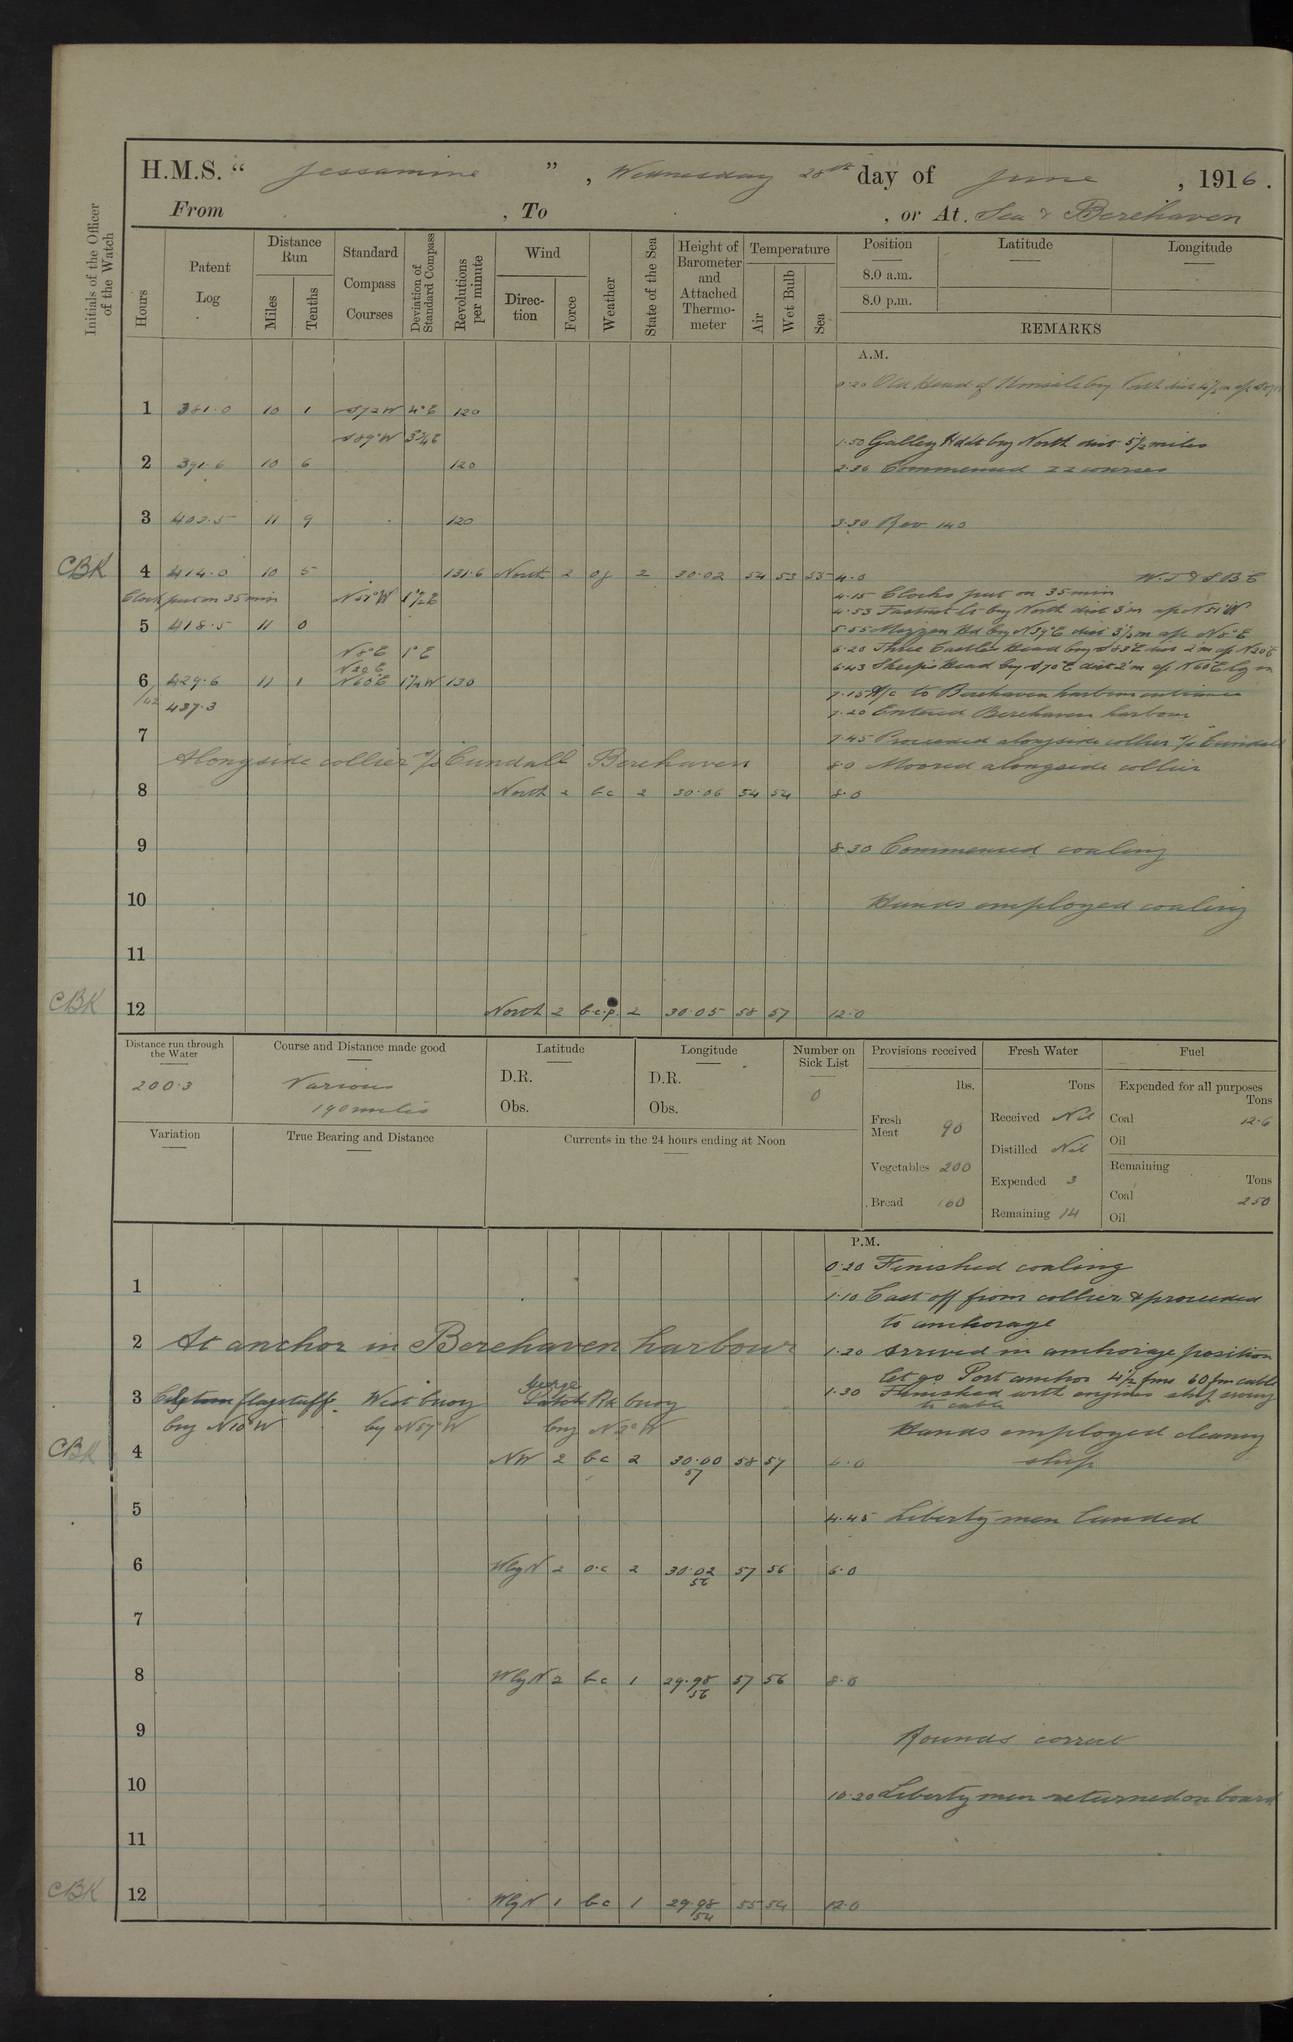 H.M.S. “ Jessamine ” , Wednesday 28th day of June , 1916 .
From , To , or At . Sea & Berehaven
Initials of the Officer of the Watch
Hours
Patent Log
Distance Run
Miles
Tenths
Standard Compass Courses
Deviation of Standard Compass
Revolutions per minute
Wind
Direction
Force
Weather
State of the Sea
Height of Barometer and Attached Thermometer
Temperature
Air
Wet Bulb
Sea
Position Latitude Longitude
8.0 a.m.
8.0 p.m.
REMARKS
A.M.
0.20 Old Head of Kinsale brg North dist 4½ m a/c
1 381.0 10 1 S72W 4°E 120
S89°W 3¾E
1.50 Galley Hd Lt brg North dist 5½ miles
2 391.6 10 6 120
2.36 Commenced ZZ courses
3 403.5 11 9 120
3.30 Rev 140
CBK 4 414.0 10 5 131.6 North 2 2 30.02 54 53 55 4.0
Clock put on 35 min N51°W 1½E
4.15 Clocks put on 35 min
4.53 Fastnet Lt brg North dist 3m a/c N51°W
5 418.5 11 0
5.55 Mizzen Hd brg N39°E dist 3½m a/c N8°E
N8°E 1°E
6.20 Three Castle Head brg S83°E dist 2m a/c N20°E
N20E
6.43 Sheep's Head brg S70°E dist 2m a/c N60°E
6 429.6 11 1 N60°E 1½W 130
7.15 A/c to Berehaven harbour entrance
/42 437.3
7.20 Entered Berehaven harbour
7
7.45 Proceeded alongside collier s/s Cundall
Alongside collier s/s Cundall Berehaven
8.0 Moored alongside collier
8 North 2 bc 2 30.06 54 54 8.0
9
8.30 Commenced coaling
10
Hands employed coaling
11
CBK 12 North 2 b.c.p. 2 30.05 58 57 12.0
Distance run through the Water
200.3
Course and Distance made good
Various
190 miles
Latitude
D.R.
Obs.
Longitude
D.R.
Obs.
Number on Sick List
0
Provisions received
lbs.
Fresh Meat 90
Vegetables 200
Bread 160
Fresh Water
Tons
Received Nil
Distilled Nil
Expended 3
Remaining 14
Fuel
Expended for all purposes
Tons
Coal 12.6
Oil
Remaining
Tons
Coal 250
Oil
Variation
True Bearing and Distance
Currents in the 24 hours ending at Noon
P.M.
0.20 Finished coaling
1
1.10 Cast off from collier & proceeded
to anchorage
2 At anchor in Berehaven harbour
1.20 Arrived in anchorage position
let go Port anchor 4½ fms 60 fm cable
3 flagstaff West buoy George Rk buoy
1.30 Finished with engines ship swung
to cable
brg N10°W by N57°W brg N2°W
Hands employed cleaning
ship
CBK 4 NW 2 bc 2 30.00 57 58 57 4.0
5
4.45 Liberty men landed
6 WbyN 2 o.c 2 30.02 56 57 56 6.0
7
8 WbyN 2 bc 1 29.98 56 57 56 8.0
9
Rounds correct
10
10.20 Liberty men returned on board
11
CBK 12 WbyN 1 bc 1 29.98 54 55 54 12.0